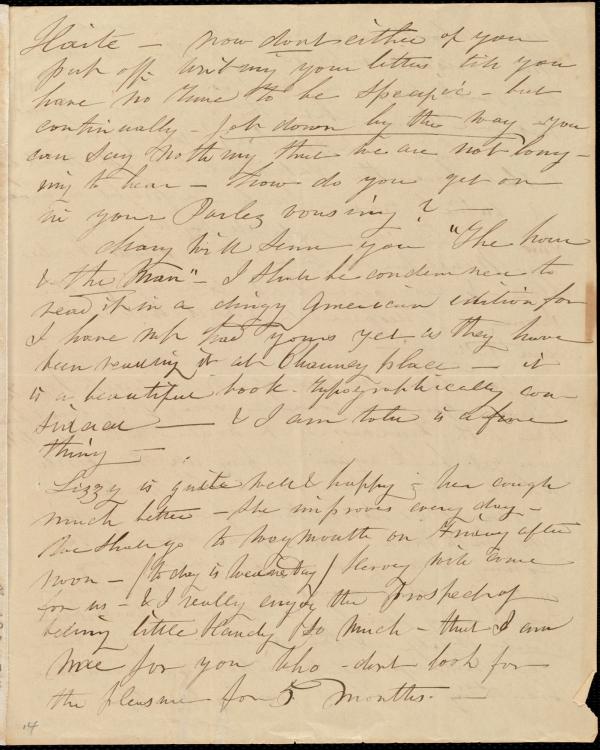 Haite – now dont either of you
put off writing your letters till you
have no time to be specific – but
continually – jot down by the way – you
can say nothing that we are not long-
ing to hear – How do you get on
in your Parlez vousing? –
Mary will send you "The hour
& the Man" – I shall be condemned to
read it in a dingy American edition for
I have not had yours yet as they have
been reading it at Chauncy place – it
is a beautiful book typographically con
sidered – & I am told is a fine
thing –
Lizzy is quite well & happy; her cough
much better – she improves every day –
We shall go to Weymouth on Friday after
noon – (to day is Wednesday) Hervey will come
for us – & I really enjoy the prospect of
seeing little Handy so much – that I am
for you who – dont look for
the pleasure for 5 months. –
14